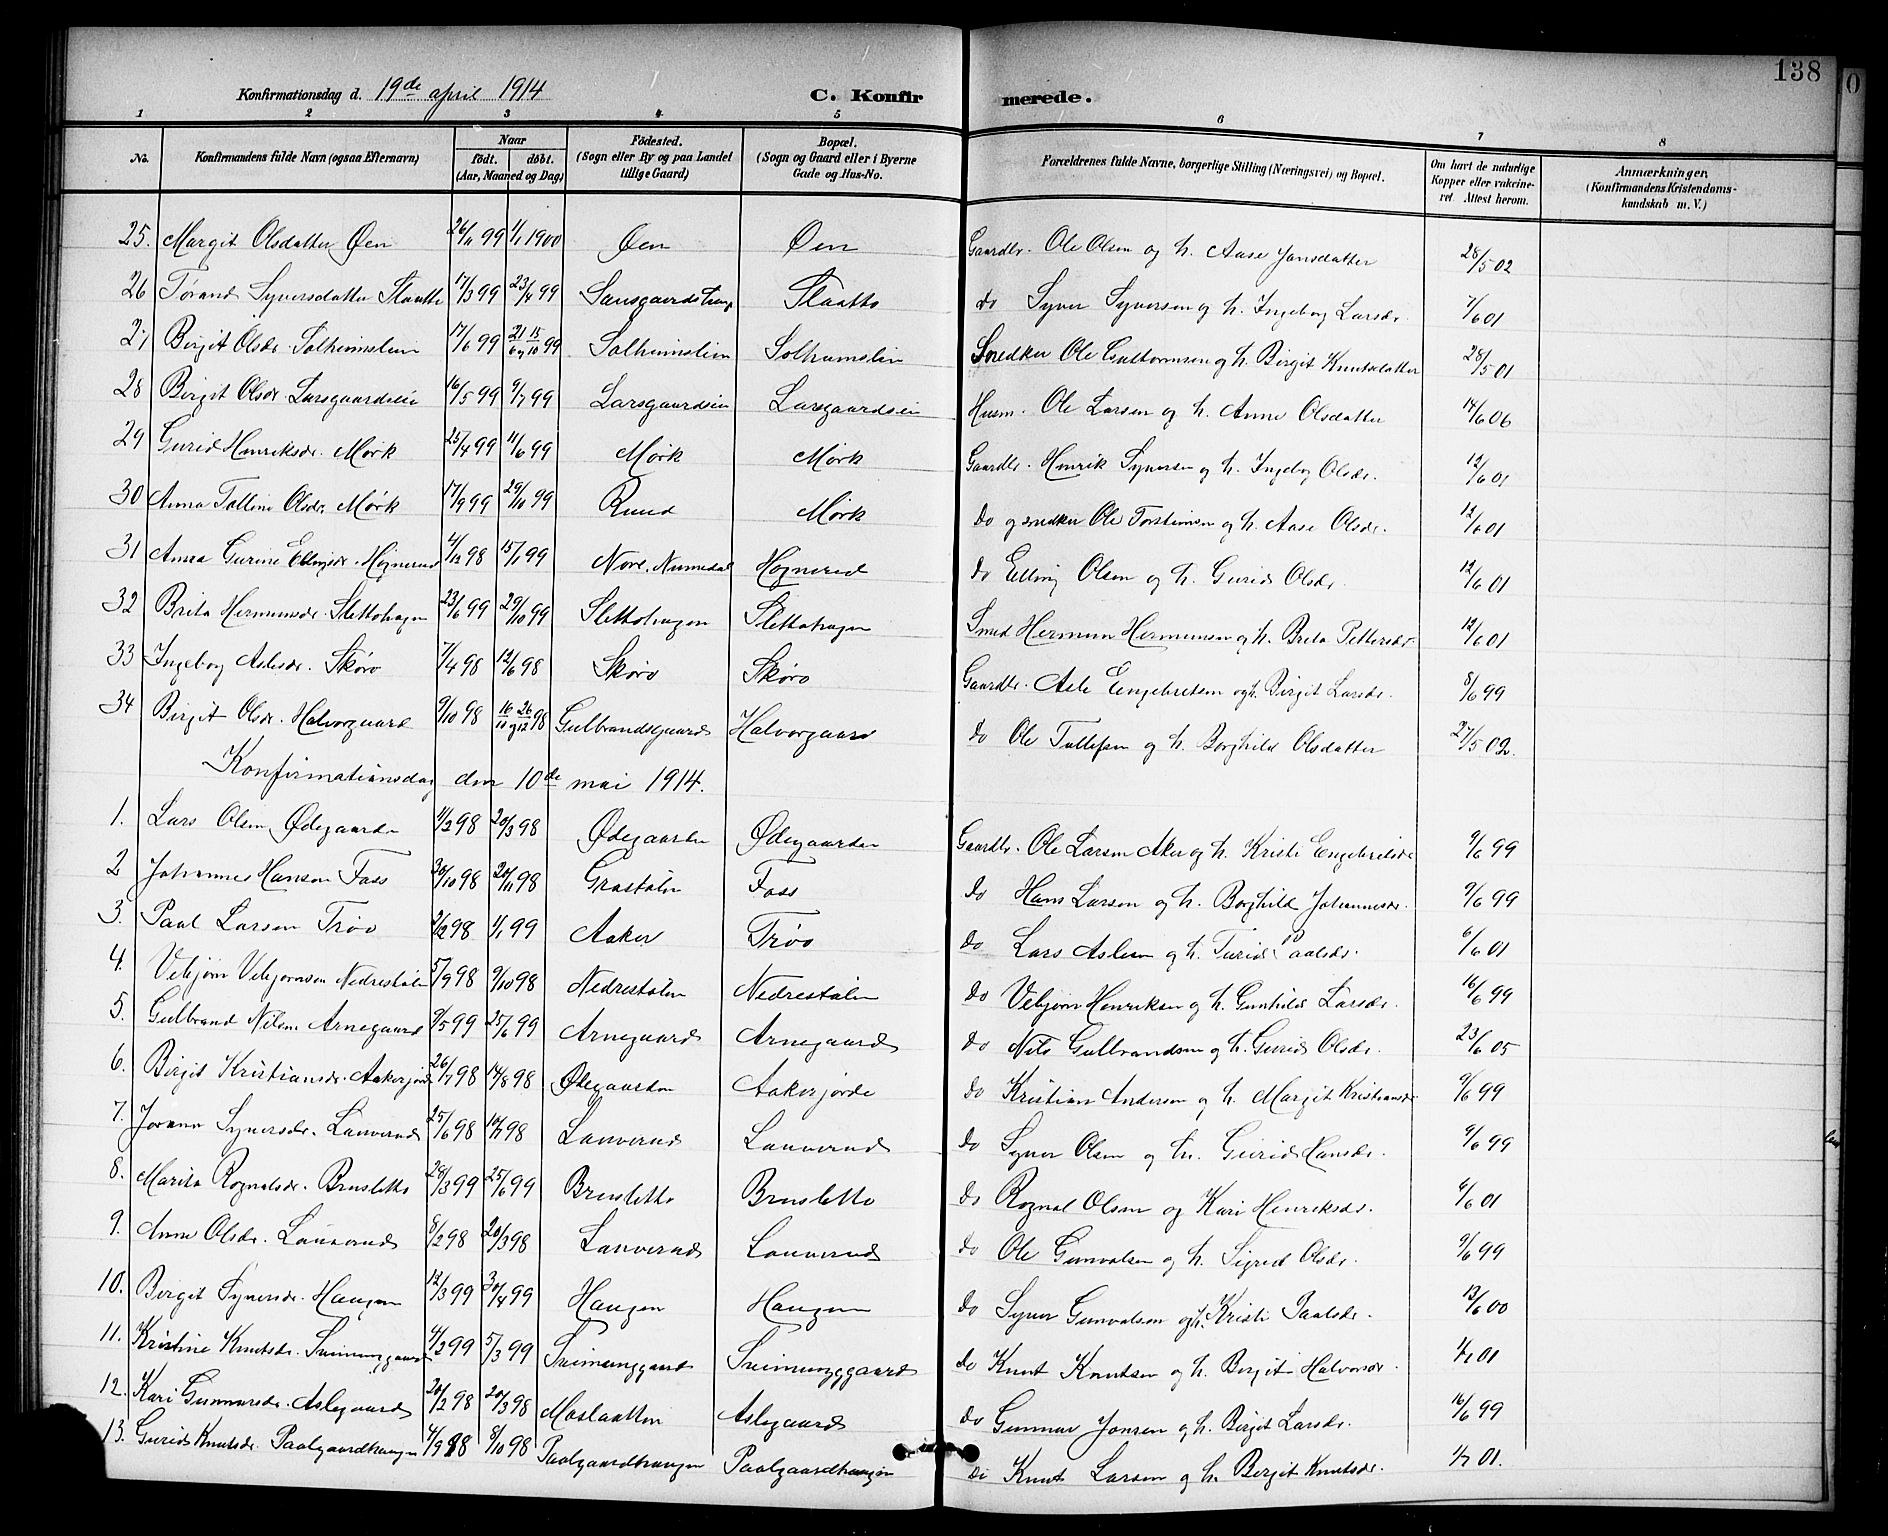 138
Konfirmationsdag d. 19de april 1914 C. Konfirmerede.
1 2 3 4 5 6 7 8
No. Konfirmandens fulde Navn (ogsaa Efternavn) Naar født. døbt. (Aar, Maaned og Dag) Fødested. (Sogn eller By og paa Landet tillige Gaard) Bopæl. (Sogn og Gaard eller i Byerne Gade og Hus-No. Forældrenes fulde Navne, borgerlige Stilling (Næringsvei) og Bopæl. Om havt de naturlige Kopper eller vakcineret Attest herom. Anmærkninger. (Konfirmandens Kristendomskundskab m. V.)
25. Margit Olsdatter Øen 26/11 99 1/1 1900 Øen Øen Gaardbr. Ole Olsen og h. Aase Jonsdatter 28/5 02
26 Tørand Syversdatter Slaatto 17/3 99 23/4 99 Slaatto do Syver Syversen og h. Ingebog Larsdr. 7/6 01
27 Birgit Olsdr. Solheimslien 17/6 99 21/6 og 15/10 99 Solheimslien Solheimslien Snedker Ole Guttormsen og h. Birgit Knutsdatter 28/5 01
28 Birgit Olsdr. Larsgaardseie 16/5 99 9/7 99 Larsgaardseie Larsgaardseie Husm. Ole Larsen og h. Anne Olsdatter 14/6 06
29 Gurid Henriksdr. Mørk 25/4 99 11/6 99 Mørk Mørk Gaardbr. Henrik Syversen og h. Ingebog Olsdr. 12/6 01
30 Anna Tolline Olsdr. Mørk 17/9 99 29/10 99 Ruud Mørk do og snedker Ole Torsteinsen og h. Aase Olsdr. 12/6 01
31 Anna Gurine Ellingsdr. Høgnerud 4/12 98 15/1 99 Nore. Numedal Høgnerud do Elling Olsen og h. Gurid Olsdr. 12/6 01
32 Brita Hermunsdr. Slettohagen 23/6 99 29/10 99 Slettohagen Slettohagen Smed Hermun Hermunsen og h. Brita Pettersdr. 12/6 01
33 Ingebog Aslesdr. Skøro 7/4 98 12/6 98 Skøro Skøro Gaardbr. Asle Engebretsen og h. Birgit Larsdr. 8/6 99
34 Birgit Olsdr. Halvorgaard 9/10 98 16/10 og 26/12 98 Gulbrandsgaard Halvorgaard do Ole Tollefsen og h. Borghild Olsdatter 27/5 02.
Konfirmationsdag den 10de mai 1914.
1. Lars Olsen Ødegaarden 11/2 98 20/3 98 Ødegaarden Ødegaarden Gaardbr. Ole Larsen Aker og h. Kristi Engebretsdr 9/6 99
2 Johannes Hansen Foss 30/10 98 20/11 98 Grøstølen Foss do Hans Larsen og h. Borghild Johannesdr. 9/6 99
3. Paal Larsen Trøo 2/12 98 1/1 99 Aaker Trøo do Lars Aslesen og h. Turid Paalsdr. 6/6 01
4. Vebjørn Vebjørnsen Nedrestølen 5/9 98 9/10 98 Nedrestølen Nedrestølen do Vebjørn Henriksen og h. Gunhild Larsdr. 16/6 99
5. Gulbrand Nilsen Arnegaard 9/5 99 25/6 99 Arnegaard Arnegaard do Nils Gulbrandsen og h. Gurid Olsdr. 23/6 05
6. Birgit Kristiansdr. Aakerjorde 26/7 98 14/8 98 Ødegaarden Aakerjorde do Kristian Andersen og h. Margit Kristiansdr 9/6 99
7. Jorann Syversdr. Lauverud 25/6 98 10/7 98 Lauverud Lauverud do Syver Olsen og h. Gurid Hansdr. 9/6 99
8. Marita Rognalsdr. Brusletto 28/3 99 25/6 99 Brusletto Brusletto do Rognal Olsen og Kari Henriksdr. 6/6 01
9. Anne Olsdr. Lauverud 8/2 98 20/3 98 Lauverud Lauverud do Ole Gunvalsen og h. Sigrid Olsdr. 9/6 99
10. Birgit Syversdr. Haugen 12/3 99 30/4 99 Haugen Haugen do Syver Gunvalsen og h. Kristi Paalsdr. 13/6 00
11. Kristine Knutsdr. Sveinunggaard 4/2 99 5/3 99 Sveinunggaard Sveinunggaard do Knut Knutsen og h. Birgit Halvorsdr 01
12. Kari Gunnarsdr. Aslegaard 20/2 98 20/3 98 Moslaatten Aslegaard do Gunnar Jonsen og h. Birgit Larsdr. 16/6 99
13. Gurid Knutsdr. Paalgaardhaugen 4/9 98 9/10 98 Paalgaardhaugen Paalgaardhaugen do Knut Larsen og h. Birgit Knutsdr. 01.